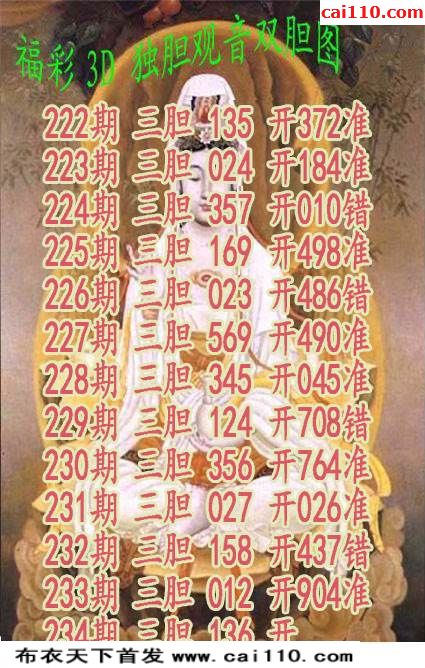 cai110.com
福彩 3D 独胆观音双胆图
222期 三胆 135 开372准
223期 三胆 024 开184准
224期 三胆 357 开010错
225期 三胆 169 开498准
226期 三胆 023 开486错
227期 三胆 569 开490准
228期 三胆 345 开045准
229期 三胆 124 开708错
230期 三胆 356 开764准
231期 三胆 027 开026准
232期 三胆 158 开437错
233期 三胆 012 开904准
234期 三胆 136 开
布衣天下首发 www.cai110.com